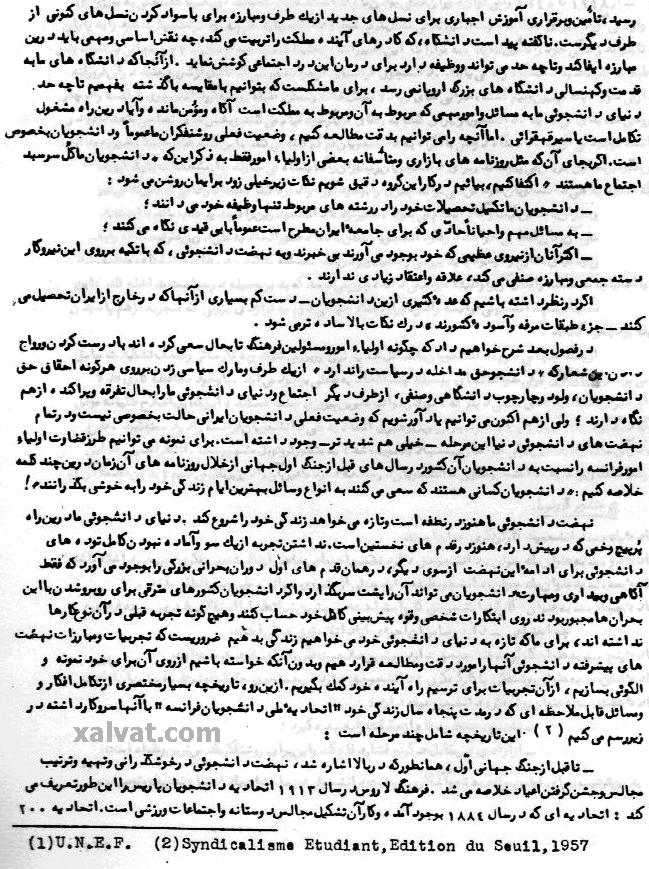 رسید، تأمین وبرقراری آموزش اجباری برای نسل های جدید ازیك طرف ومبارزه برای باسواد کردن نسل های کنونی از
طرف دیگرست. ناگفته پیداست دانشگاه، که کادرهای آینده مملکت راتربیت می کند، چه نقش اساسی ومهمی باید درین
مبارزه ایفاکند وتاچه حد می تواند ووظیفه دارد برای درمان این درد اجتماعی کوشش نماید. ازآنجاکه دانشگاه های مابه
قدمت وکهنسالی دانشگاه های بزرگ اروپائی نمی رسد، برای مامشکلست که بتوانیم بامقایسه باگذشته بفهمیم تاچه حد
دنیای دانشجوئی مابه مسائل وامورمهمی که مربوط به آن ومربوط به مملکت است آگاه ومؤمن مانده وآیادرین راه مشغول
تکامل است یاسیرقهقرائی. اماآنچه رامی توانیم بدقت مطالعه کنیم، وضعیت فعلی روشنفکران ماعموماً ودانشجویان بخصوص
است. اگربجای آن که مثل روزنامه های بازاری ومتأسفانه بعضی ازاولیاء امورفقط به ذکراین که «دانشجویان ماگل سرسبد
اجتماع ماهستند» اکتفاکنیم، بیائیم درکاراین گروه دقیق شویم نکات زیرخیلی زود برایمان روشن می شود:
ــ دانشجویان ماتکمیل تحصیلات خود رادررشته های مربوط تنهاوظیفه خود می دانند؛
ــ به مسائل مهم واحیاناًحادّی که برای جامعهٔ ایران مطرح است عموماًبابی قیدی نگاه می کنند؛
ــ اکثرآنان ازنیروی عظیمی که خود بوجود می آورند بی خبرند وبه نهضت دانشجوئی، که باتکیه برروی این نیروکار
دسته جمعی ومبارزه صنفی می کند، علاقه واعتقاد زیادی ندارند.
اگردرنظرداشته باشیم که عده کثیری ازین دانشجویان ــ دست کم بسیاری ازآنهاکه درخارج ازایران تحصیل می
کنند ــ جزء طبقات مرفه وآسوده کشورند، درك نکات بالا ساده ترمی شود.
درفصول بعد شرح خواهیم داد که چگونه اولیاء امورومسئولین فرهنگ تابحال سعی کرده اند بادرست کردن ورواج
دادن این شعارکه «دانشجوحق مداخله درسیاست راندارد» ازیك طرف ومارك سیاسی زدن برروی هرگونه احقاق حق
دانشجویان، ولودرچارچوب دانشگاهی وصنفی، ازطرف دیگر اجتماع ودنیای دانشجوئی ما رابحال تفرقه وپراکنده ازهم
نگاه دارند؛ ولی ازهم اکنون می توانیم یادآورشویم که وضعیت فعلی دانشجویان ایرانی حالت بخصوصی نیست ودرتمام
نهضت های دانشجوئی دنیااین مرحله ــ خیلی هم شدیدترــ وجود داشته است. برای نمونه می توانیم طرزقضاوت اولیاء
امورفرانسه رانسبت به دانشجویان آن کشوردرسال های قبل ازجنگ اول جهانی ازخلال روزنامه های آن زمان درین چند کلمه
خلاصه کنیم: «دانشجویان کسانی هستند که سعی می کنند به انواع وسائل بهترین ایام زندگی خود رابه خوشی بگذرانند»!
نهضت دانشجوئی ماهنوزدرنطفه است وتازه می خواهد زندگی خود راشروع کند. دنیای دانشجوئی مادرین راه
پرپیچ وخمی که درپیش دارد، هنوزدرقدم های نخستین است. نداشتن تجربه ازیك سو وآماده نبودن کامل توده های
دانشجوئی برای ادامهٔ این نهضت ازسوی دیگر، درهمان قدم های اول دوران بحرانی بزرگی رابوجود می آورد که فقط
آگاهی وبیداری ومهارت دانشجویان می تواند آن راپشت سربگذارد واگردانشجویان کشورهای مترقی برای روبروشدن بااین
بحران هامجبوربودند روی ابتکارات شخصی وقوه پیش بینی کامل خود حساب کنند وهیچ گونه تجربه قبلی درآن نوع کارها
نداشته اند، برای ماکه تازه به دنیای دانشجوئی خود می خواهیم زندگی بدهیم ضروریست که تجربیات ومبارزات نهضت
های پیشرفته دانشجوئی آنهارامورد دقت ومطالعه قراردهیم وبدون آنکه خواسته باشیم ازروی آن برای خود نمونه و
الگوئی بسازیم، ازآن تجربیات برای ترسیم راه آینده خود کمك بگیریم. ازین رو، تاریخچه بسیارمختصری ازتکامل افکار و
وسائل قابل ملاحظه ای که درمدت پنجاه سال زندگی خود «اتحادیهٔ ملی دانشجویان فرانسه» باآنهاسروکارداشته در
زیررسم می کنیم (۲). این تاریخچه شامل چند مرحله است:
xalvat.com
ــ تاقبل ازجنگ جهانی اول، همانطورکه دربالااشاره شد، نهضت دانشجوئی درخوشگذرانی وتهیه وترتیب
مجالس وجشن گرفتن اعیاد خلاصه می شد. فرهنگ لاروس درسال ۱۹۱۳ اتحادیه دانشجویان پاریس رااین طورتعریف می
کند: اتحادیه ای که درسال ۱۸۸٤ بوجود آمده وکارآن تشکیل مجالس دوستانه واجتماعات ورزشی است. اتحادیه ۲۰۰
(1)U.N.E.F. (2)Syndicalisme Etudiant,Edition du Seuil,1957